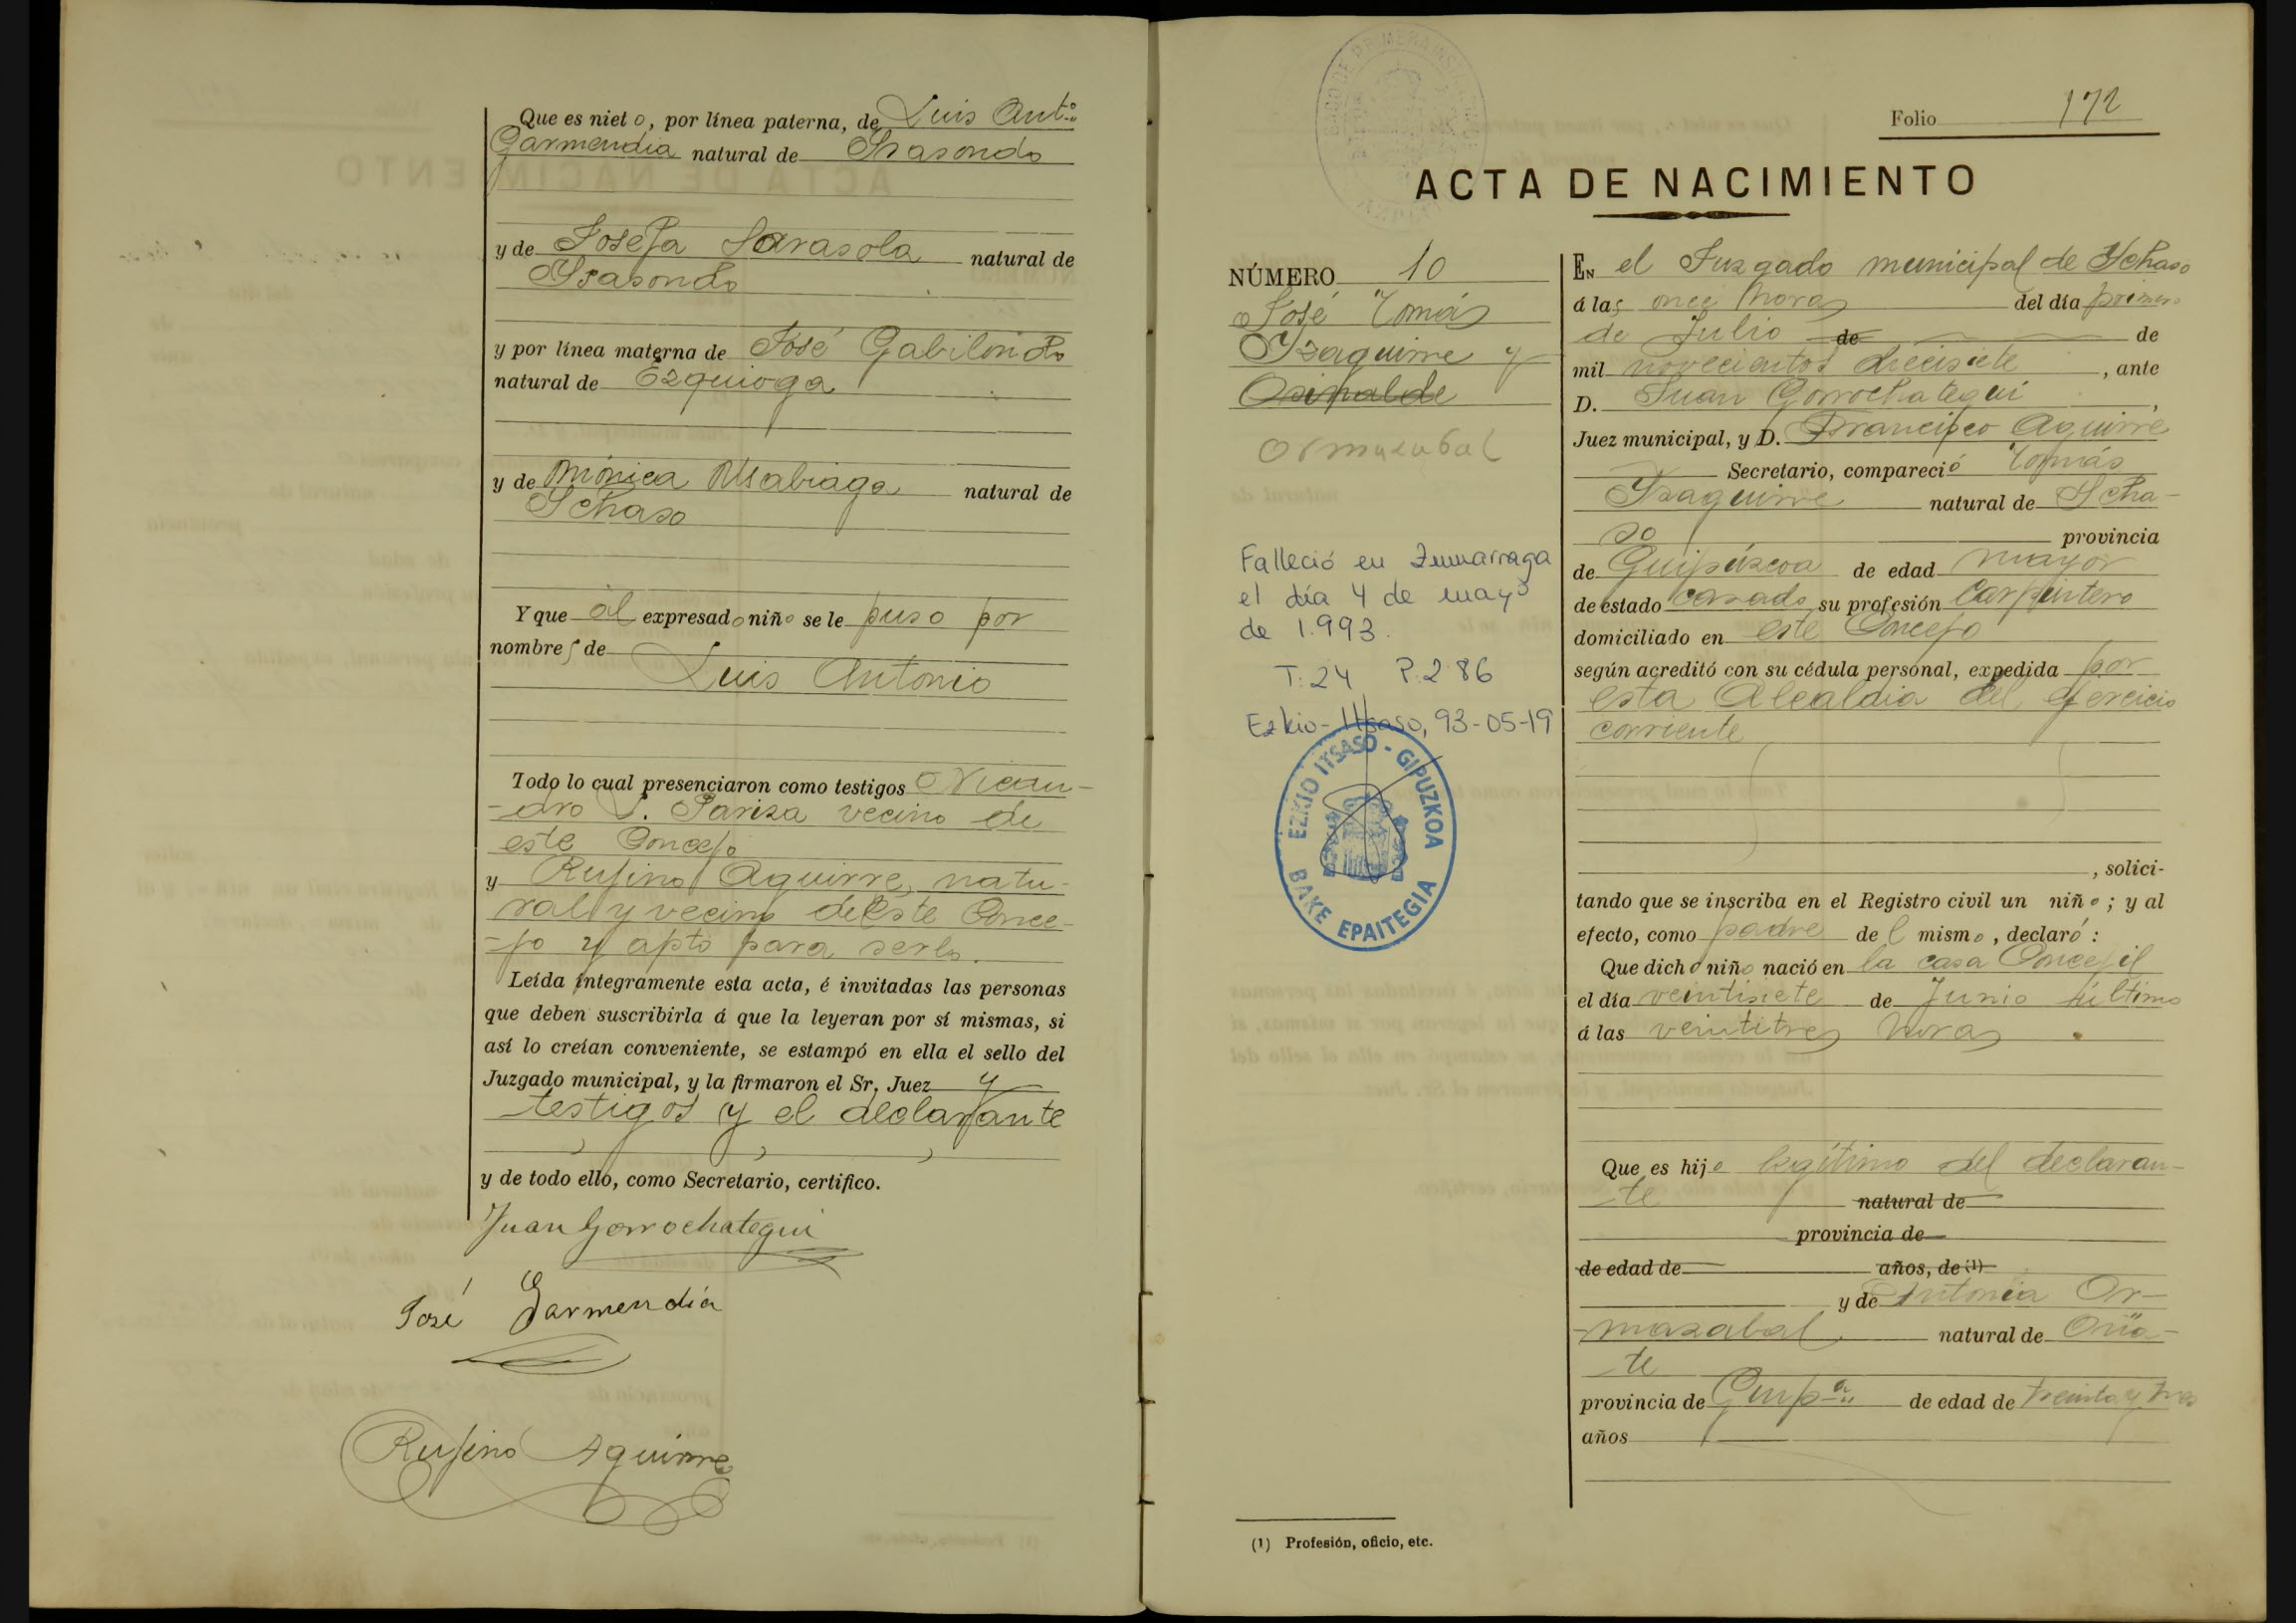 Que es nieto, por línea paterna, de Luis Antº
Garmendia natural de Isasondo
y de Josefa Sarasola natural de
Isasondo
y por línea materna de José Gabilondo
natural de Ezquioga
y de Mónica Alsabiaga natural de
Ichaso
Y que al expresado niño se le puso por
nombres de
Luis Antonio
Todo lo cual presenciaron como testigos Nican-
-dro S. Pariza vecino de
este Concejo
y Rufino Aguirre, natu-
ral y vecino de este Conce-
-jo y apto para serlo.
Leída íntegramente esta acta, é invitadas las personas
que deben suscribirla á que la leyeran por sí mismas, si
así lo creían conveniente, se estampó en ella el sello del
Juzgado municipal, y la firmaron el Sr. Juez y
testigos y el declarante
y de todo ello, como Secretario, certifico.
Juan Gorrochategui
José Garmendia
Rufino Aguirre
Folio 172
ACTA DE NACIMIENTO
NÚMERO 10
José Tomás
Yzaguirre y
Ormazabal
Falleció en Zumarraga
el día 4 de mayo
de 1.993.
T: 24 P. 286
Ezkio-Itsaso, 93-05-19
EZKIO ITSASO - GIPUZKOA
BAKE EPAITEGIA
EN el Juzgado municipal de Ychaso
á las once horas del día primero
de Julio de de
mil novecientos diecisiete, ante
D. Juan Gorrochategui,
Juez municipal, y D. Francisco Aguirre
Secretario, compareció Tomás
Yzaguirre natural de Ycha-
so provincia
de Guipúzcoa de edad mayor
de estado casado, su profesión Carpintero
domiciliado en este Concejo
según acreditó con su cédula personal, expedida por
esta Alcaldia del ejercicio
corriente
, solici-
tando que se inscriba en el Registro civil un niño; y al
efecto, como padre del mismo, declaró:
Que dicho niño nació en la casa Concejil
el día veintisiete de Junio último
á las veintitres horas
Que es hijo legítimo del declaran-
te natural de
provincia de
de edad de años, de (1)
y de Antonia Or-
-mazabal natural de Oña-
te
provincia de Guipª de edad de treinta y tres
años
(1) Profesión, oficio, etc.